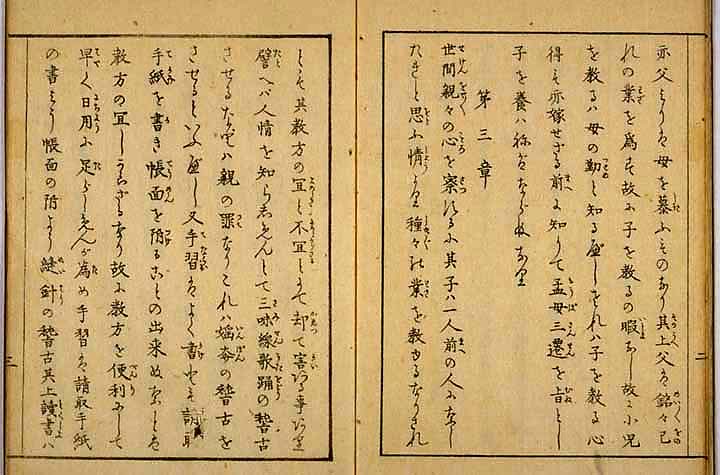 亦父よりも母を慕ふものなり其上父は銘々己
れの業を為す故に子を教るの暇なし故に小児
を教るハ母の勤と知るべしされハ子を教る心
得も亦嫁せざる前に知りて孟母三遷を旨とし
子を養ハねばならぬなり
第三章
世間親々の心を察するに其子ハ一人前の人になし
たきと思ふ情より種々の業を教るなりされ
とも其教方の宜と不宜とにて却て害ある事あり
譬へバ人情を知らしめんとて三味線歌踊の稽古
させるなぞハ親の罪なりこれハ婬奔の稽古を
させるといふべし又手習はよく書ても請取
手紙を書き帳面を附ることの出来ぬなとは
教方の宜しからざるなり故に教方を便利にして
早く日用に足らしめんが為め手習は請取手紙
の書よう帳面の附よう縫針の稽古其上読書ハ
二
三